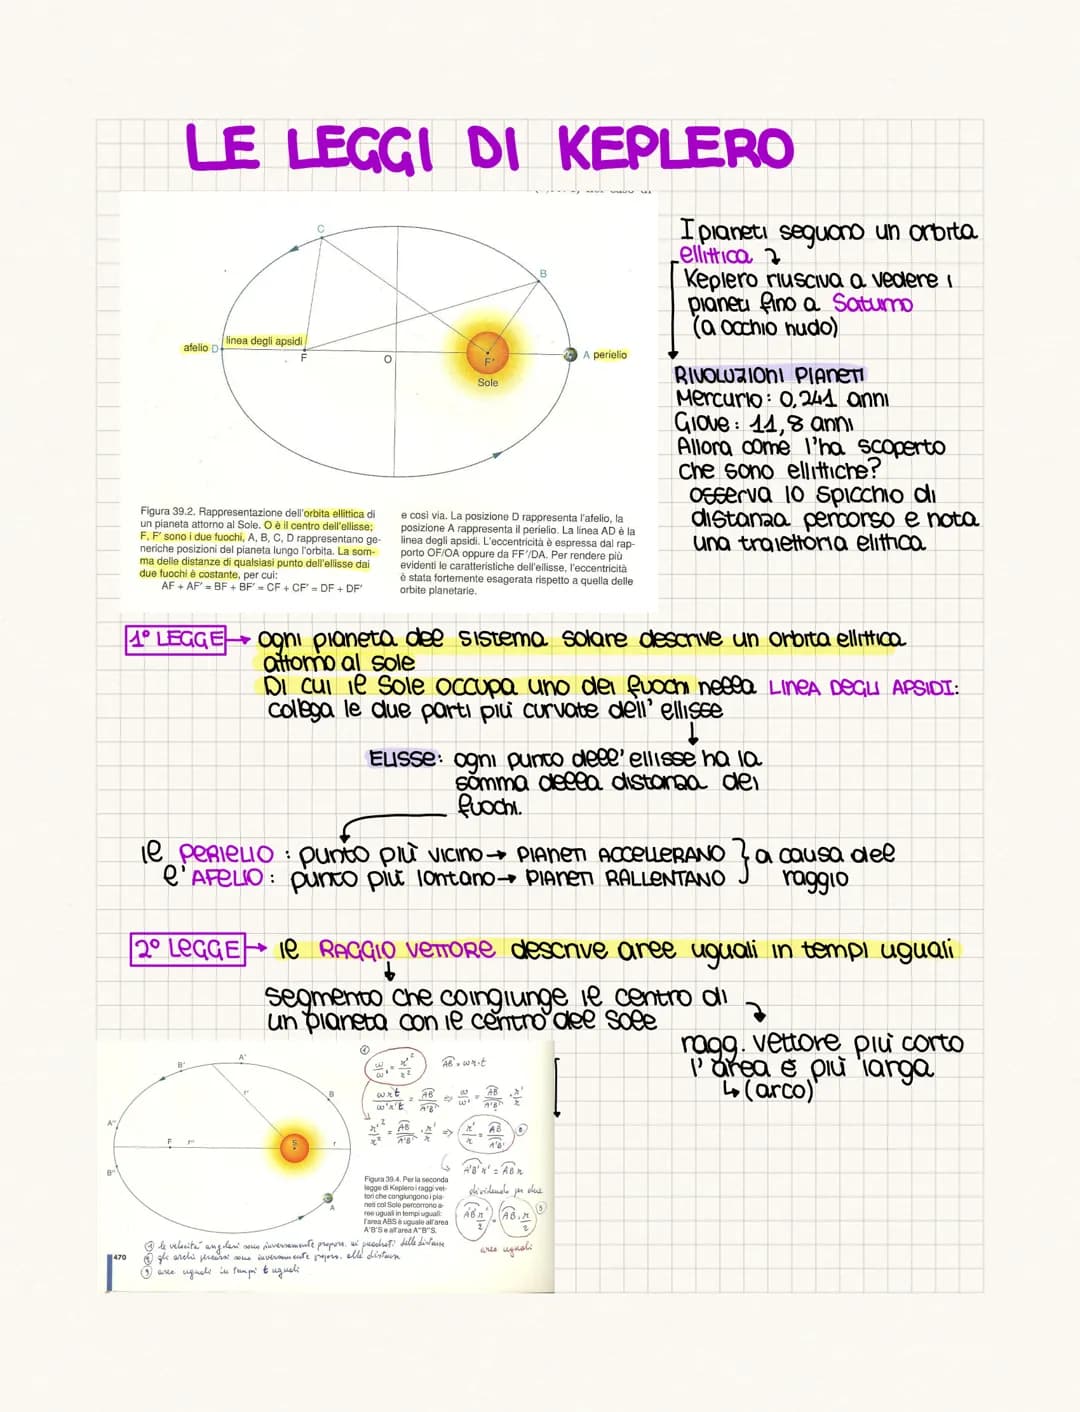 LE LEGGI DI KEPLERO
I pianeti seguono un orbita
ellittica
Keplero riusciva a vedere i
pianeti fino a Saturno
(a occhio nudo)
RIVOLUZIONI PIANETI
Mercurio: 0,241 anni
Giove: 11,8 anni
Allora come l'ha scoperto
che sono ellittiche?
osserva lo spicchio di
distanza percorso e nota
una traiettoria elittica
C
B
afelio D
linea degli apsidi
F
O
F'
Sole
A perielio
Figura 39.2. Rappresentazione dell'orbita ellittica di
un pianeta attorno al Sole. O è il centro dell'ellisse;
F, F' sono i due fuochi, A, B, C, D rappresentano ge-
neriche posizioni del pianeta lungo l'orbita. La som-
ma delle distanze di qualsiasi punto dell'ellisse dai
due fuochi è costante, per cui:
AF + AF' = BF + BF' = CF + CF' = DF + DF'
e così via. La posizione D rappresenta l'afelio, la
posizione A rappresenta il perielio. La linea AD è la
linea degli apsidi. L'eccentricità è espressa dal rap-
porto OF/OA oppure da FF'/DA. Per rendere più
evidenti le caratteristiche dell'ellisse, l'eccentricità
è stata fortemente esagerata rispetto a quella delle
orbite planetarie.
1° LEGGE → ogni pianeta del sistema solare descrive un orbita ellittica
attorno al sole
Di cui il Sole occupa uno dei fuochi nella LINEA DEGLI APSIDI:
collega le due parti più curvate dell'ellisse
ELISSE: ogni punto dell'ellisse ha la
somma della distanza dei
fuochi.
il PERIELIO: punto più vicino → PIANETI ACCELLERANO } a causa del
l'AFELIO: punto più lontano → PIANETI RALLENTANO raggio
2° LEGGE → il RAGGIO VETTORE descrive aree uguali in tempi uguali
segmento che coingiunge il centro di
un pianeta con il centro del sole
ragg. vettore più corto
l'area è più larga
↳ (arco)
B'
A'
r'
B
A"
F
r"
S
r
B"
A
AB = ωr·t
Figura 39.4. Per la seconda
legge di Keplero i raggi vet-
tori che congiungono i pia-
neti col Sole percorrono a-
ree uguali in tempi uguali:
l'area ABS è uguale all'area
A'B'S e all'area A"B"S.
A'B' r' = AB r
dividendo per due
aree uguali
① le velocità angolari sono inversamente propor. ai quadrati delle distanze
② gli archi percorsi sono inversamente propor. alle distanze
③ aree uguali in tempi t uguali
470